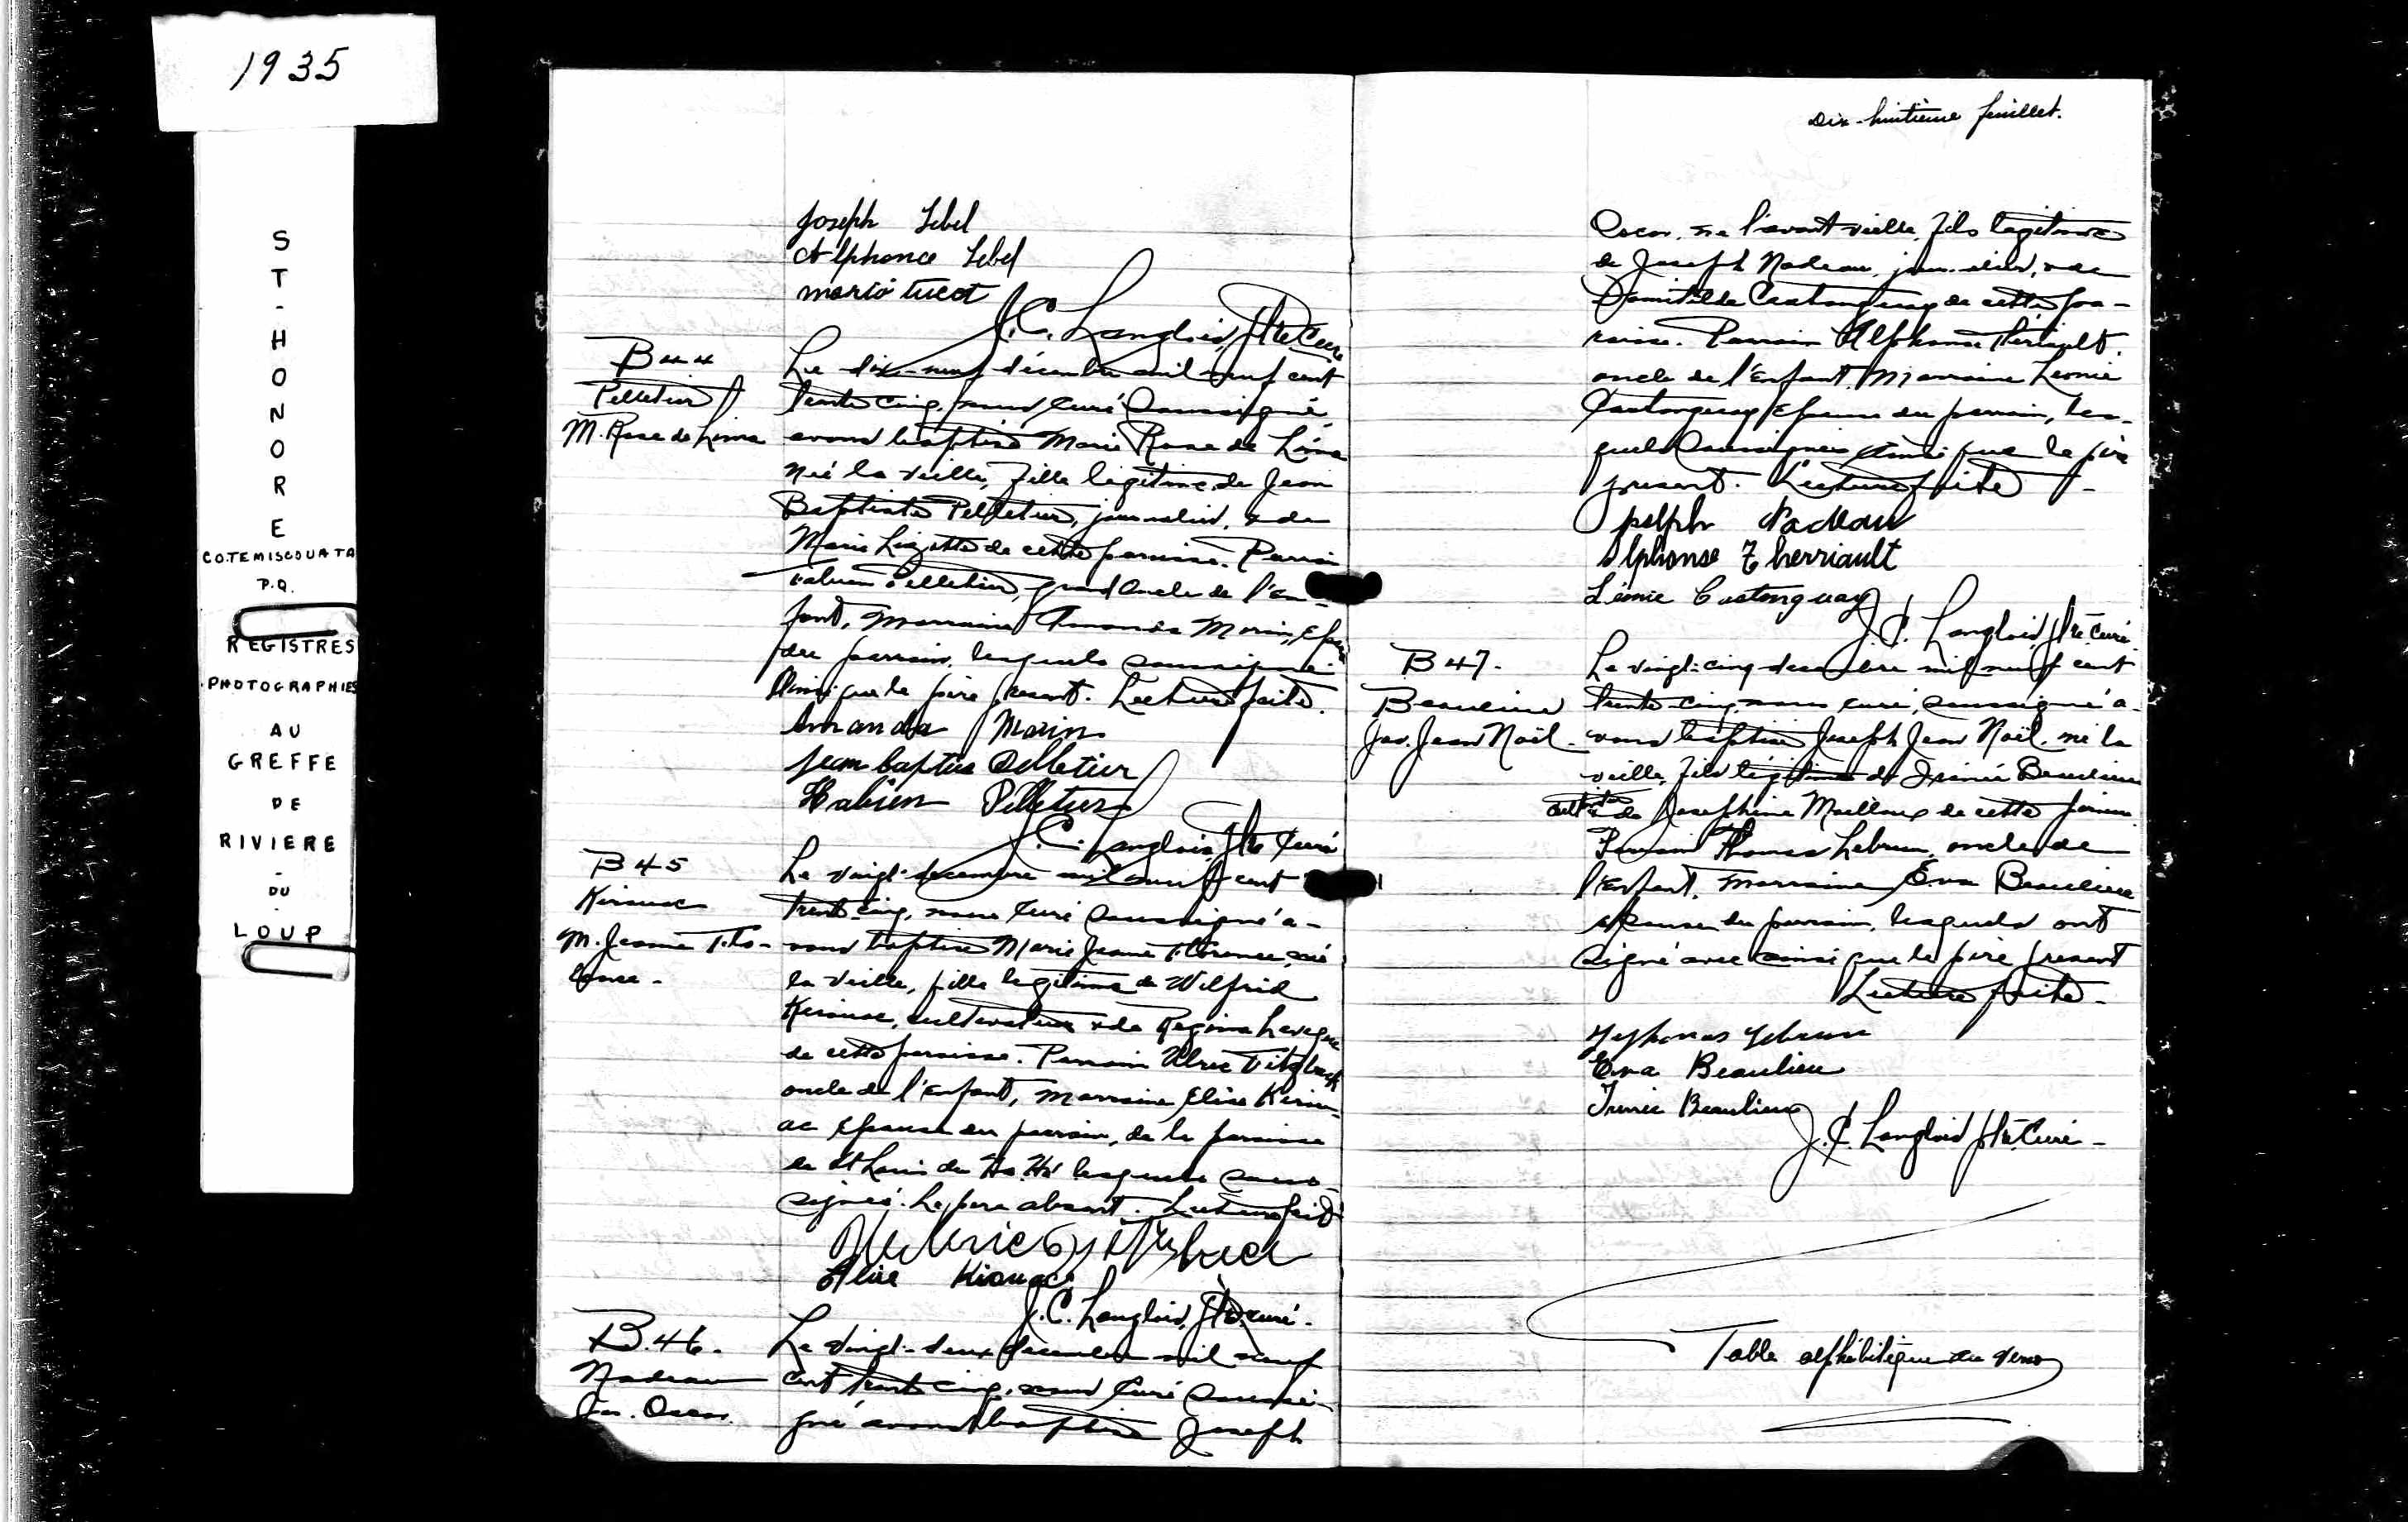 1935
ST-HONORE
CO.TEMISCOUATA
P.Q.
REGISTRES
PHOTOGRAPHIES
AU
GREFFE
DE
RIVIERE
-
DU
-
LOUP
Joseph Lebel
Alphonce Lebel
J.C. Langlois, Ptre Curé
B 44
Pelletier
M. Rose de Lima
Le dix-neuf décembre mil neuf cent
trente cinq, nous Curé Soussigné,
avons baptisé Marie Rose de Lima
née la veille, fille légitime de Jean
Baptiste Pelletier, journalier, & de
Marie Lizotte de cette paroisse. Parrain
Fabien Pelletier, grand Oncle de l'en-
fant, Marraine Amanda Morin, Epouse
du parrain, lesquels soussignés
Ainsi que le père présent. Lecture faite.
Amanda Morin
Jean baptise Pelletier
Fabien Pelletier
J.C. Langlois, Ptre Curé
B 45
Kirouac
M. Jeanne Flo-
rence -
Le vingt-decembre mil neuf cent
trente-cinq, nous Curé Soussigné a-
vons baptisé Marie Jeanne Florence, née
la veille, fille légitime de Wilfrid
Kirouac, cultivateur & de Régina Levesque
de cette paroisse. Parrain Ulric Fitzback
oncle de l'Enfant, Marraine Elise Kirou-
ac Epouse du parrain, de la paroisse
de St Louis du Ha. Ha! lesquels sous-
signés. Le père absent. Lecture faite
Kirouac
J.C. Langlois, Ptre curé.
B. 46.
Nadeau
Jos. Oscar.
Le vingt-deux décembre mil neuf
cent trente cinq, nous Curé Soussi-
gné avons baptisé Joseph
Dix-huitième feuillet.
Oscar, né l'avant veille, fils légitime
de Joseph Nadeau, journalier, & de
Domitilde Castonguay de cette pa-
roisse. Parrain Alphonse Thériault
oncle de l'Enfant, Marraine Léonie
Castonguay Epouse du parrain, les-
quels Soussignés Ainsi que le père
présent. Lecture faite -
Joseph Nadeau
Alphonse Therriault
Léonie Castonguay
J.C. Langlois, Ptre Curé
B 47.
Beaulieu
Jos. Jean Noël -
Le vingt-cinq decembre mil neuf cent
trente-cinq nous curé, soussigné a-
vons baptisé Joseph Jean Noël, né la
veille, fils légitime de Irénée Beaulieu
& de Josephine Mailloux de cette paroisse
Parrain Thomas Lebrun, oncle de
l'Enfant, Marraine Eva Beaulieu
épouse du parrain, lesquels ont
signé avec ainsi que le père présent
Lecture faite -
Eva Beaulieu
Irénée Beaulieu
J.C. Langlois Ptre. Curé -
Table alphabétique au verso